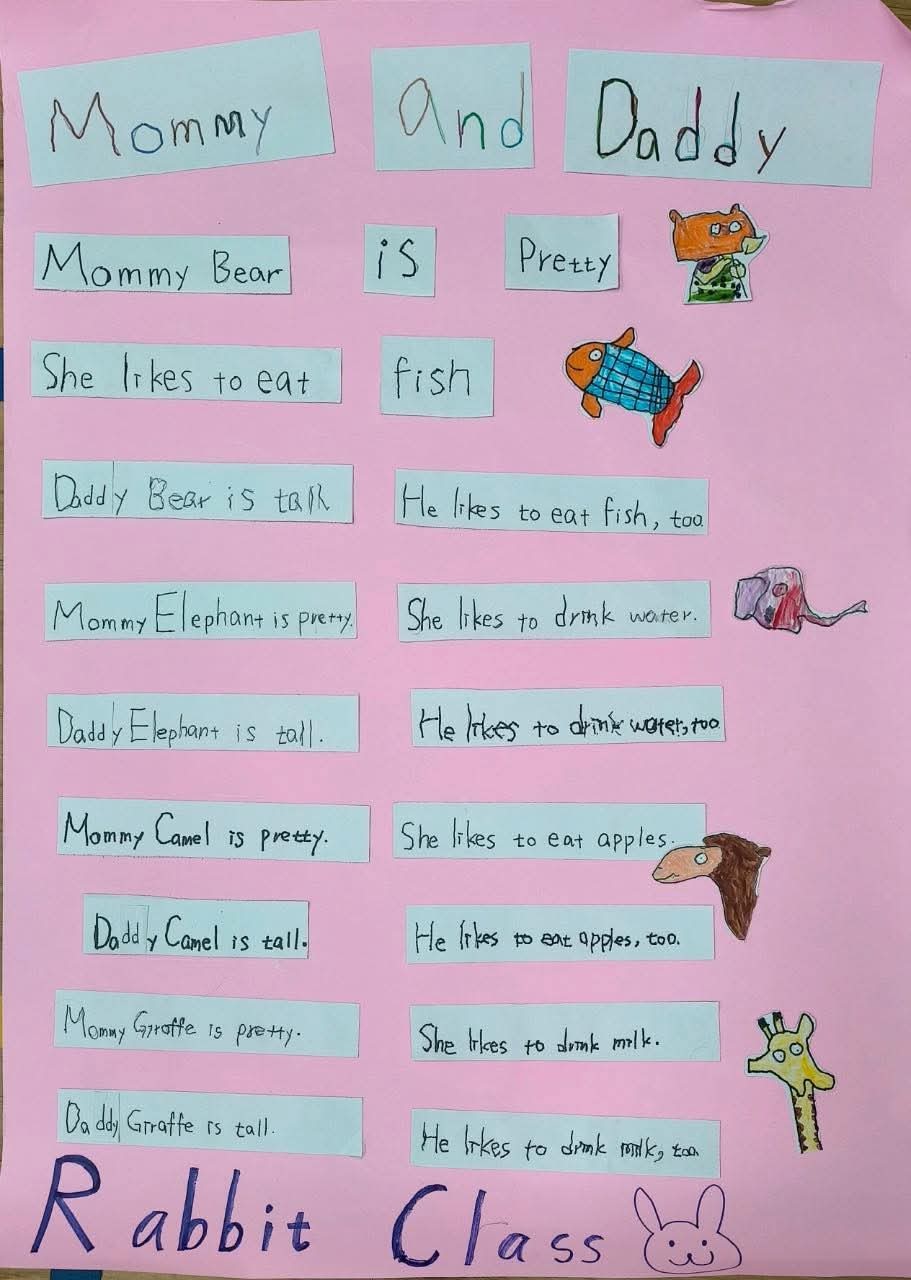 Mommy And Daddy
Mommy Bear is Pretty
She likes to eat fish
Daddy Bear is tall. He likes to eat fish, too.
Mommy Elephant is pretty. She likes to drink water.
Daddy Elephant is tall. He likes to drink water, too.
Mommy Camel is pretty. She likes to eat apples.
Daddy Camel is tall. He likes to eat apples, too.
Mommy Giraffe is pretty. She likes to drink milk.
Daddy Giraffe is tall. He likes to drink milk, too.
Rabbit Class